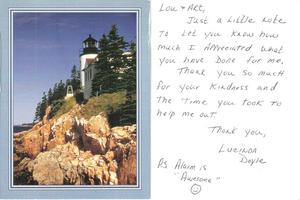 Lou & ART,
Just a Little Note
To Let you know how
much I Appreciated what
you have Done for me.
Thank you so much
for your Kindness and
The Time you Took To
help me out.
Thank you,
Lucinda
Doyle
P.S Alarm is
"Awesome"